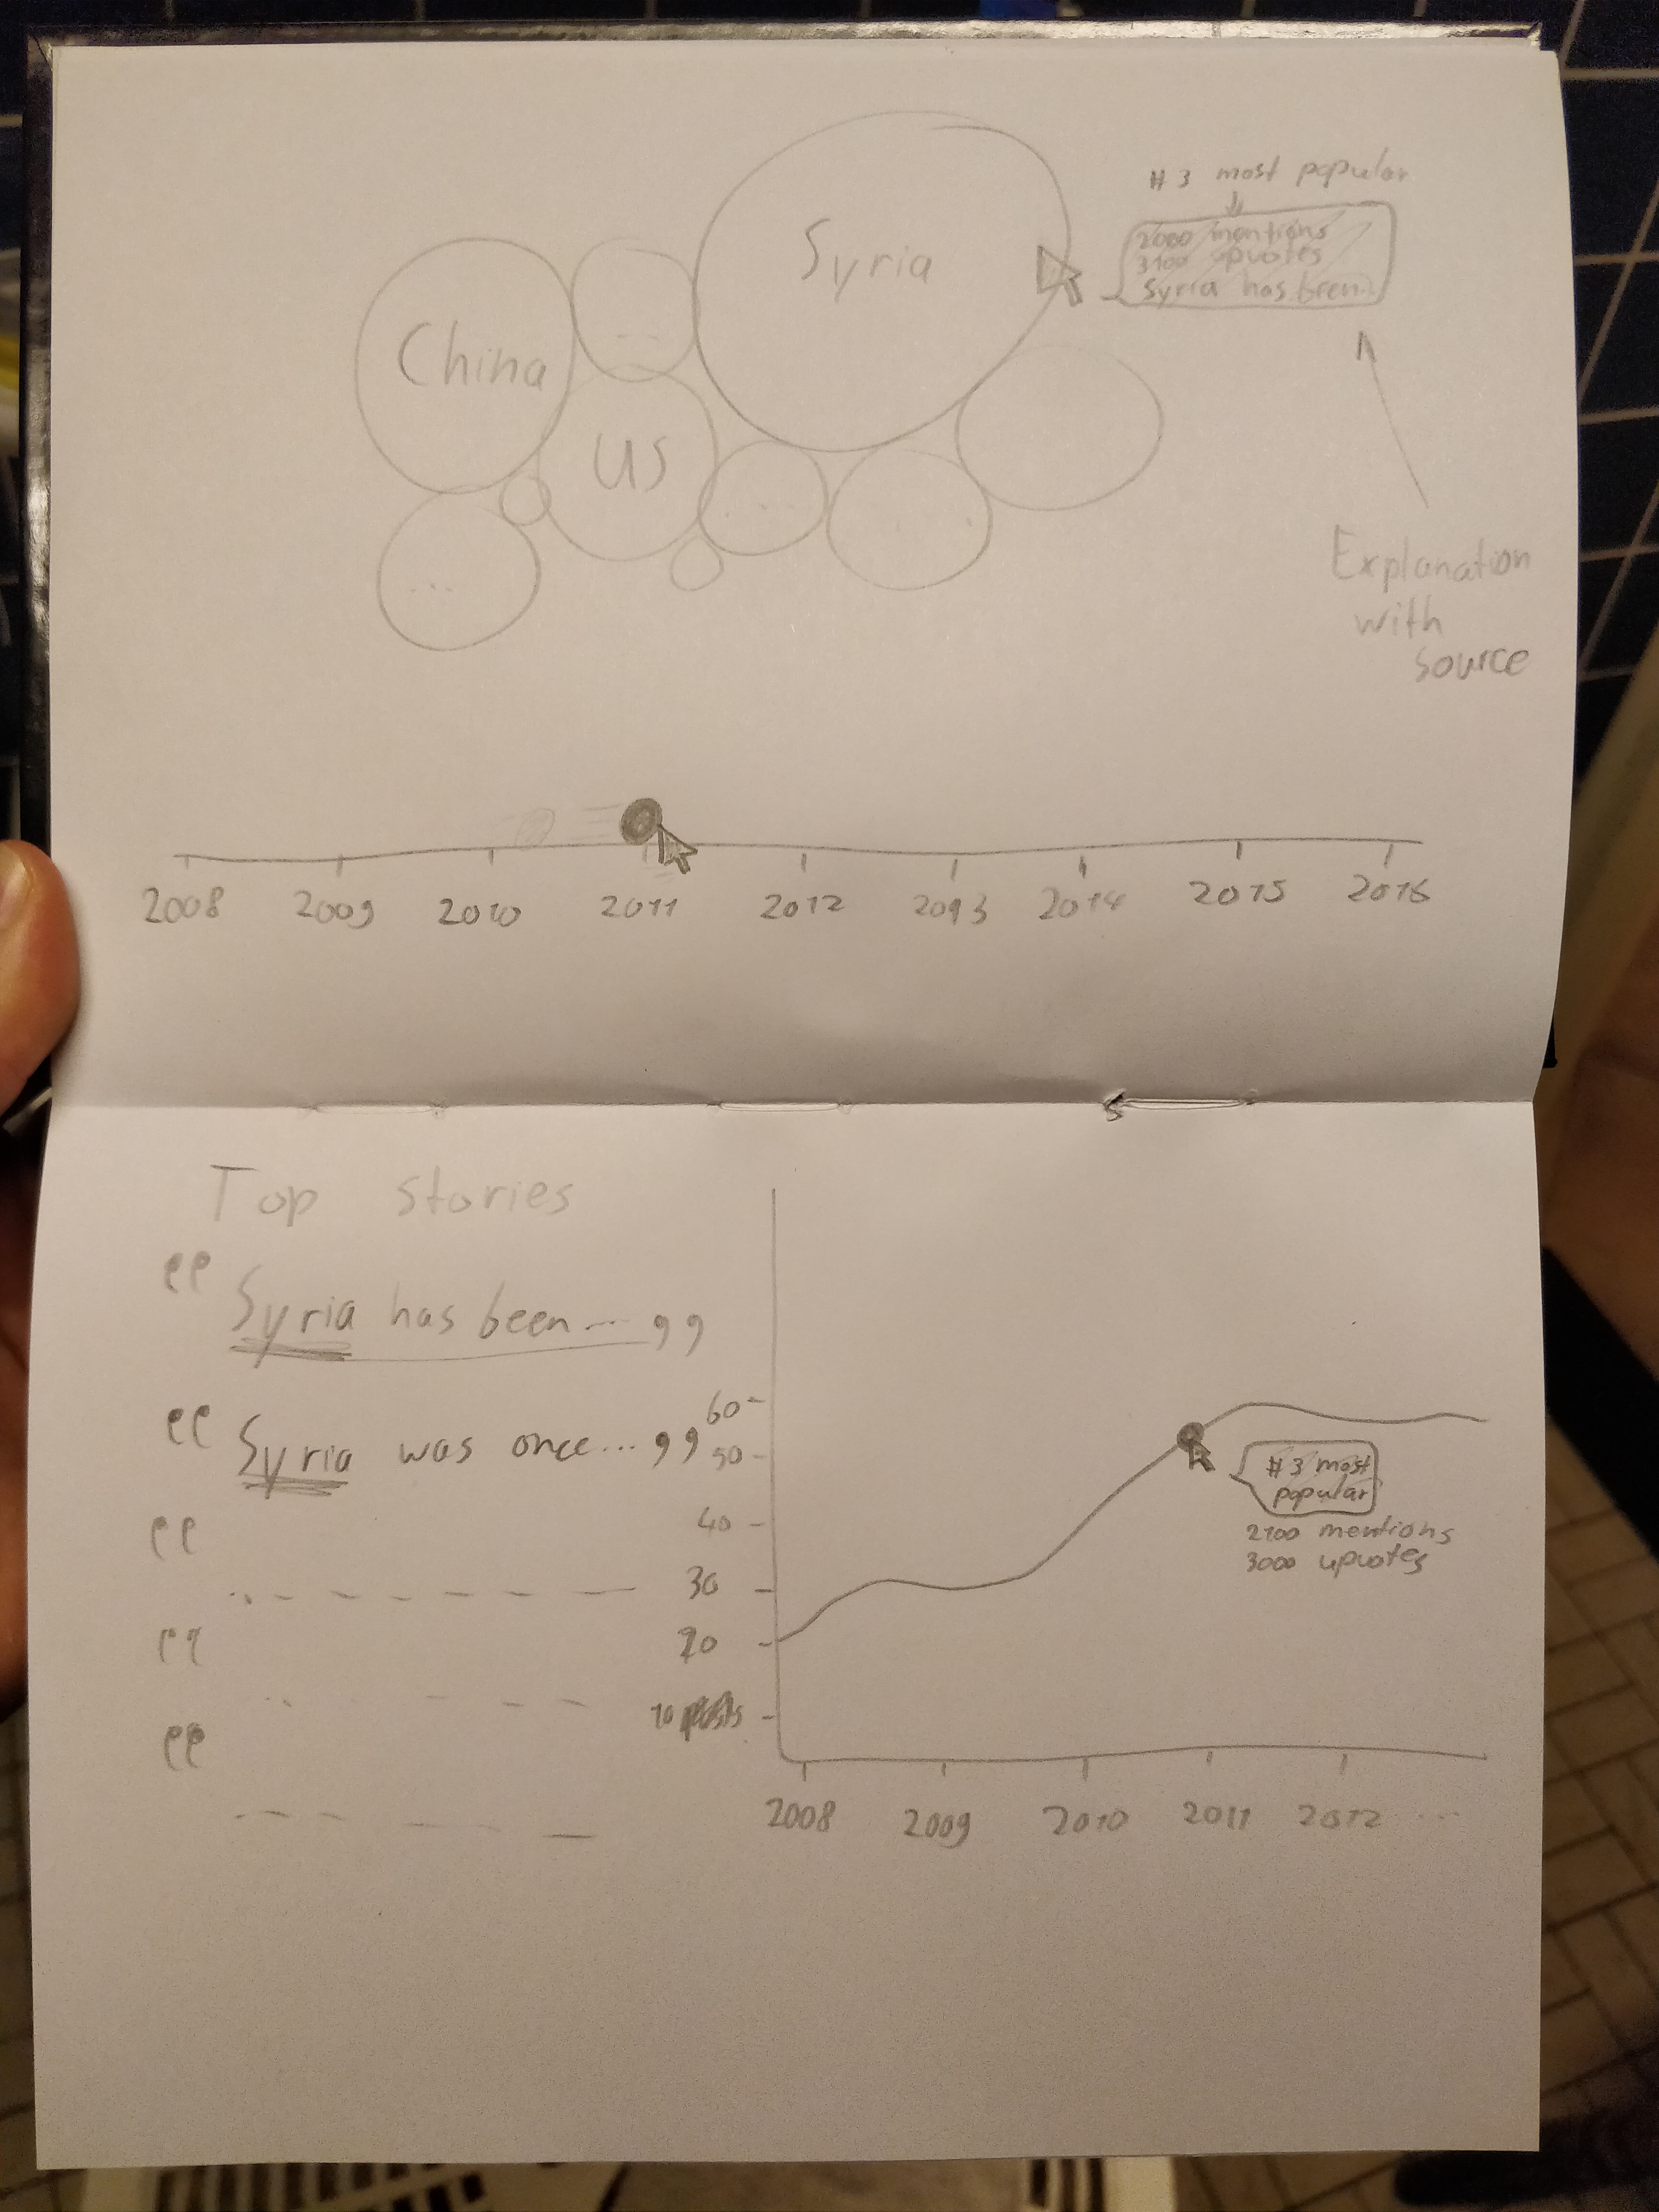 # 3 most popular
2000 mentions
3100 upvotes
Syria has been...
Syria
China
...
US
...
...
...
Explanation
with
source
2008 2009 2010 2011 2012 2013 2014 2015 2016
Top stories
"Syria has been... "
"Syria was once... "
"
"
"
60
50
40
30
20
10 posts
# 3 most
popular
2100 mentions
3000 upvotes
2008 2009 2010 2011 2012 ...